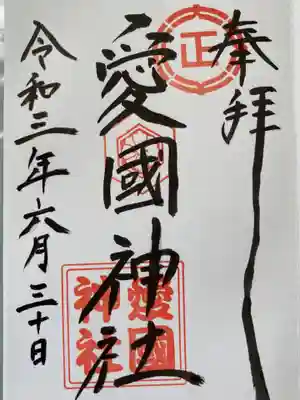 奉拝
愛國神社
令和三年六月三十日
正
愛國
神社